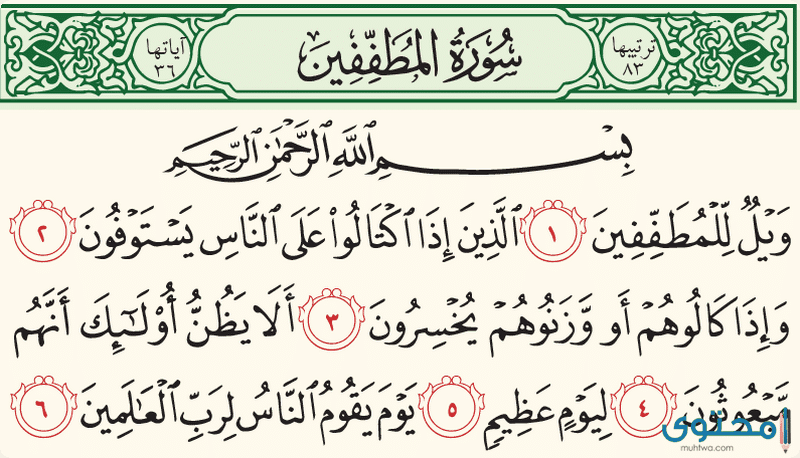 ترتيبها ٨٣
سُورَةُ المُطَفِّفِينَ
آياتها ٣٦
بِسْمِ ٱللَّهِ ٱلرَّحْمَٰنِ ٱلرَّحِيمِ
وَيْلٌ لِّلْمُطَفِّفِينَ ١ ٱلَّذِينَ إِذَا ٱكْتَالُوا۟ عَلَى ٱلنَّاسِ يَسْتَوْفُونَ ٢
وَإِذَا كَالُوهُمْ أَو وَّزَنُوهُمْ يُخْسِرُونَ ٣ أَلَا يَظُنُّ أُو۟لَٰٓئِكَ أَنَّهُم
مَّبْعُوثُونَ ٤ لِيَوْمٍ عَظِيمٍ ٥ يَوْمَ يَقُومُ ٱلنَّاسُ لِرَبِّ ٱلْعَٰلَمِينَ ٦
محتوى
muhtwa.com